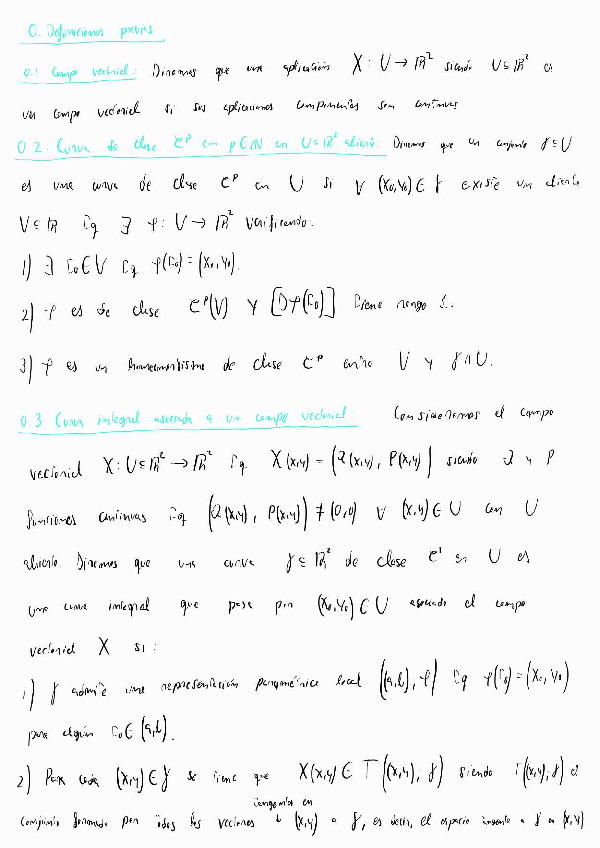 0. Definiciones previas
0.1 Campo vectorial: Diremos que una aplicación X: U → ℝ² siendo U ⊆ ℝ² es
un campo vectorial si sus aplicaciones componentes son continuas
0.2: Curva de clase 𝒞ᵖ con p∈ℕ en U⊆ℝ² abierto: Diremos que un conjunto γ⊆U
es una curva de clase 𝒞ᵖ en U si ∀ (x₀,y₀) ∈ γ existe un abierto
V ⊆ ℝ tq ∃ φ: V → ℝ² verificando:
1) ∃ t₀∈V tq φ(t₀) = (x₀,y₀).
2) φ es de clase 𝒞ᵖ(V) y [Dφ(t₀)] tiene rango 1.
3) φ es un homeomorfismo de clase 𝒞ᵖ entre V y γ∩U.
0.3 Curva integral asociada a un campo vectorial: Consideremos el campo
vectorial X: U⊆ℝ² → ℝ² tq X(x,y) = (Q(x,y), P(x,y)) siendo Q y P
funciones continuas tq (Q(x,y), P(x,y)) ≠ (0,0) ∀ (x,y) ∈ U con U
abierto. Diremos que una curva γ⊆ℝ² de clase 𝒞¹ en U es
una curva integral que pasa por (x₀,y₀) ∈ U asociada al campo
vectorial X si:
1) γ admite una representación paramétrica local ((a,b), φ) tq φ(t₀) = (x₀,y₀)
para algún t₀ ∈ (a,b).
2) Para cada (x,y) ∈ γ se tiene que X(x,y) ∈ T((x,y), γ) siendo T((x,y), γ) el
tangentes en
conjunto formado por todos los vectores (x,y) a γ, es decir, el espacio tangente a γ en (x,y)